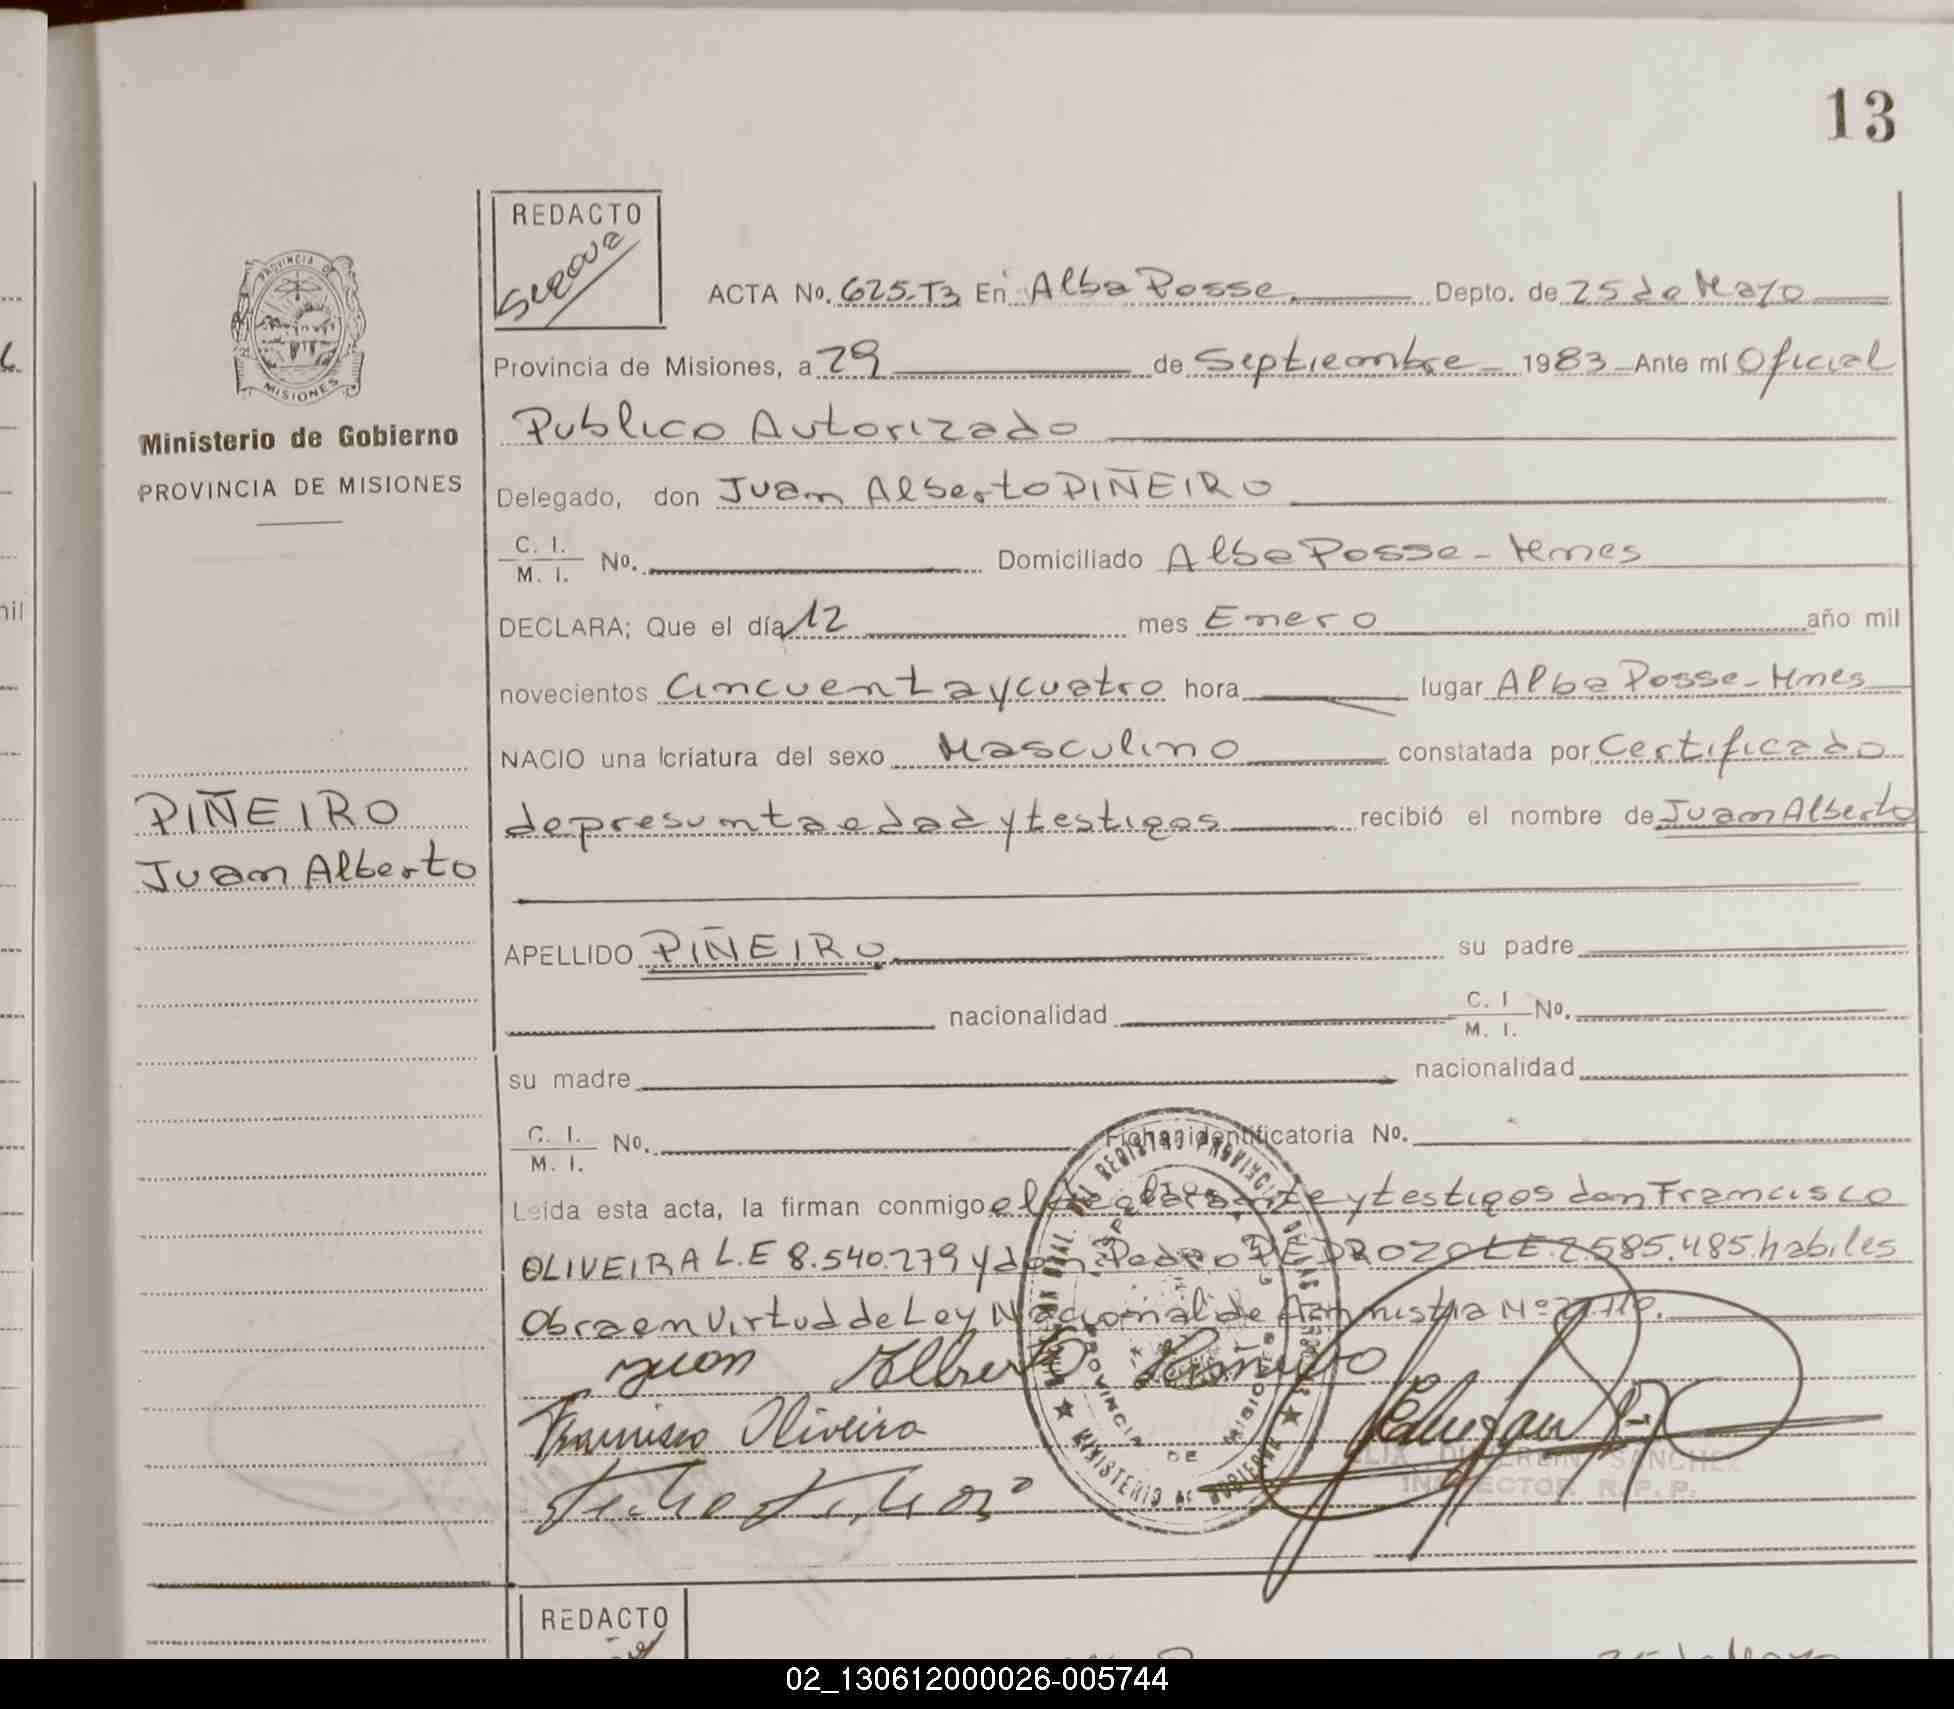 13
REDACTO
ACTA No. 625.T3 En Alba Posse Depto. de 25 de Mayo
PROVINCIA DE
MISIONES
Provincia de Misiones, a 29 de Septiembre 1983 Ante mí Oficial
Publico Autorizado
Ministerio de Gobierno
PROVINCIA DE MISIONES
Delegado, don Juan Alberto PIÑEIRO
C. I.
M. I. No. Domiciliado Alba Posse - Mnes
DECLARA; Que el día 12 mes Enero año mil
novecientos Cincuenta y cuatro hora lugar Alba Posse - Mnes
NACIO una criatura del sexo Masculino constatada por Certificado
de presunta edad y testigos recibió el nombre de Juan Alberto
PIÑEIRO
Juan Alberto
APELLIDO PIÑEIRO su padre
nacionalidad C. I
M. I. No.
su madre nacionalidad
C. I.
M. I. No. Ficha identificatoria No.
Leída esta acta, la firman conmigo el declarante y testigos don Francisco
OLIVEIRA L.E 8.540.279 y don Pedro PEDROZO L.E. 2.585.485 habiles
Obra en virtud de Ley Nacional de Amnistia Nº
Juan Alberto Piñeiro
Francisco Oliveira
INSPECTOR R. P. P.
PROVINCIA DE MISIONES
MINISTERIO DE GOBIERNO
REDACTO
02_130612000026-005744